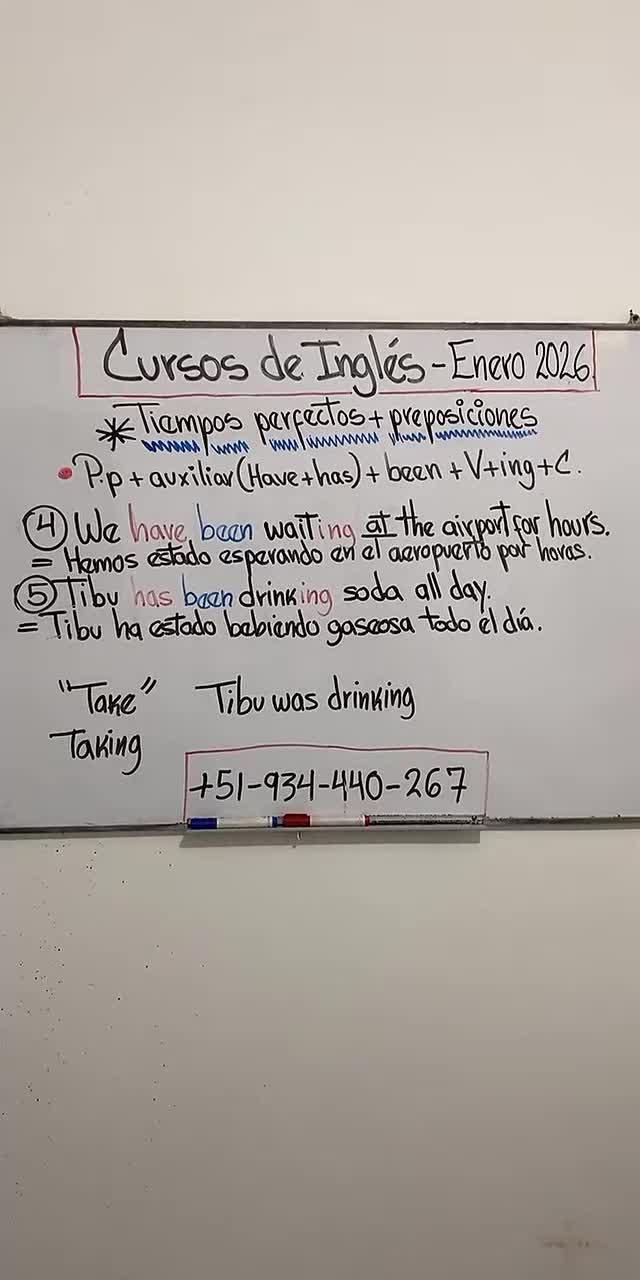 Cursos de Inglés - Enero 2026
* Tiempos perfectos + preposiciones
• P.p + auxiliar (Have + has) + been + V + ing + C.
④ We have been waiting at the airport for hours.
= Hemos estado esperando en el aeropuerto por horas.
⑤ Tibu has been drinking soda all day.
= Tibu ha estado bebiendo gaseosa todo el día.
"Take" Tibu was drinking
Taking
+51-934-440-267